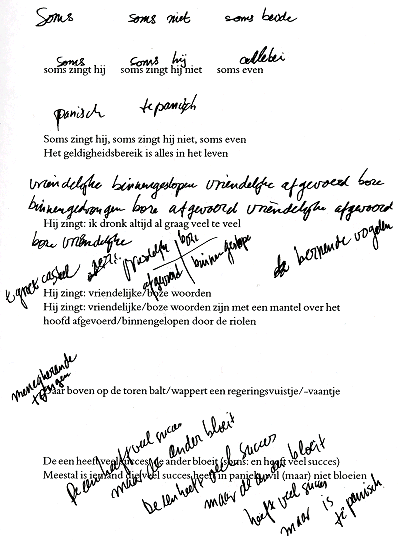 Soms soms niet soms beide
soms soms hij allebei
soms zingt hij soms zingt hij niet soms even
panisch te panisch
Soms zingt hij, soms zingt hij niet, soms even
Het geldigheidsbereik is alles in het leven
vriendelijke binnengelopen vriendelijke afgevoerd boze
binnengedrongen boze afgevoerd vriendelijke afgevoerd
Hij zingt: ik dronk altijd al graag veel te veel
boze vriendelijke
vriendelijke boze
afgevoerd binnengelopen
de vogelen
Hij zingt: vriendelijke/boze woorden
Hij zingt: vriendelijke/boze woorden zijn met een mantel over het
hoofd afgevoerd/binnengelopen door de riolen
Daar boven op de toren balt/wappert een regeringsvuistje/-vaantje
De een heeft veel succes
maar de ander bloeit
De een heeft veel succes
maar de ander bloeit
De een heeft veel succes, de ander bloeit (soms: en heeft veel succes)
Meestal is iemand die veel succes heeft in paniek wil (maar) niet bloeien
heeft veel succes
maar is te panisch